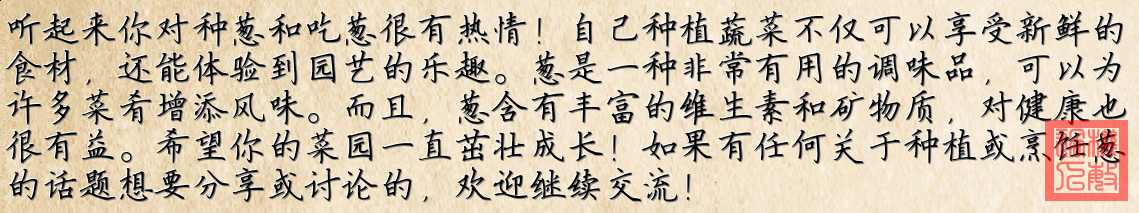 听起来你对种葱和吃葱很有热情！自己种植蔬菜不仅可以享受新鲜的
食材，还能体验到园艺的乐趣。葱是一种非常有用的调味品，可以为
许多菜肴增添风味。而且，葱含有丰富的维生素和矿物质，对健康也
很有益。希望你的菜园一直茁壮成长！如果有任何关于种植或烹饪葱
的话题想要分享或讨论的，欢迎继续交流！